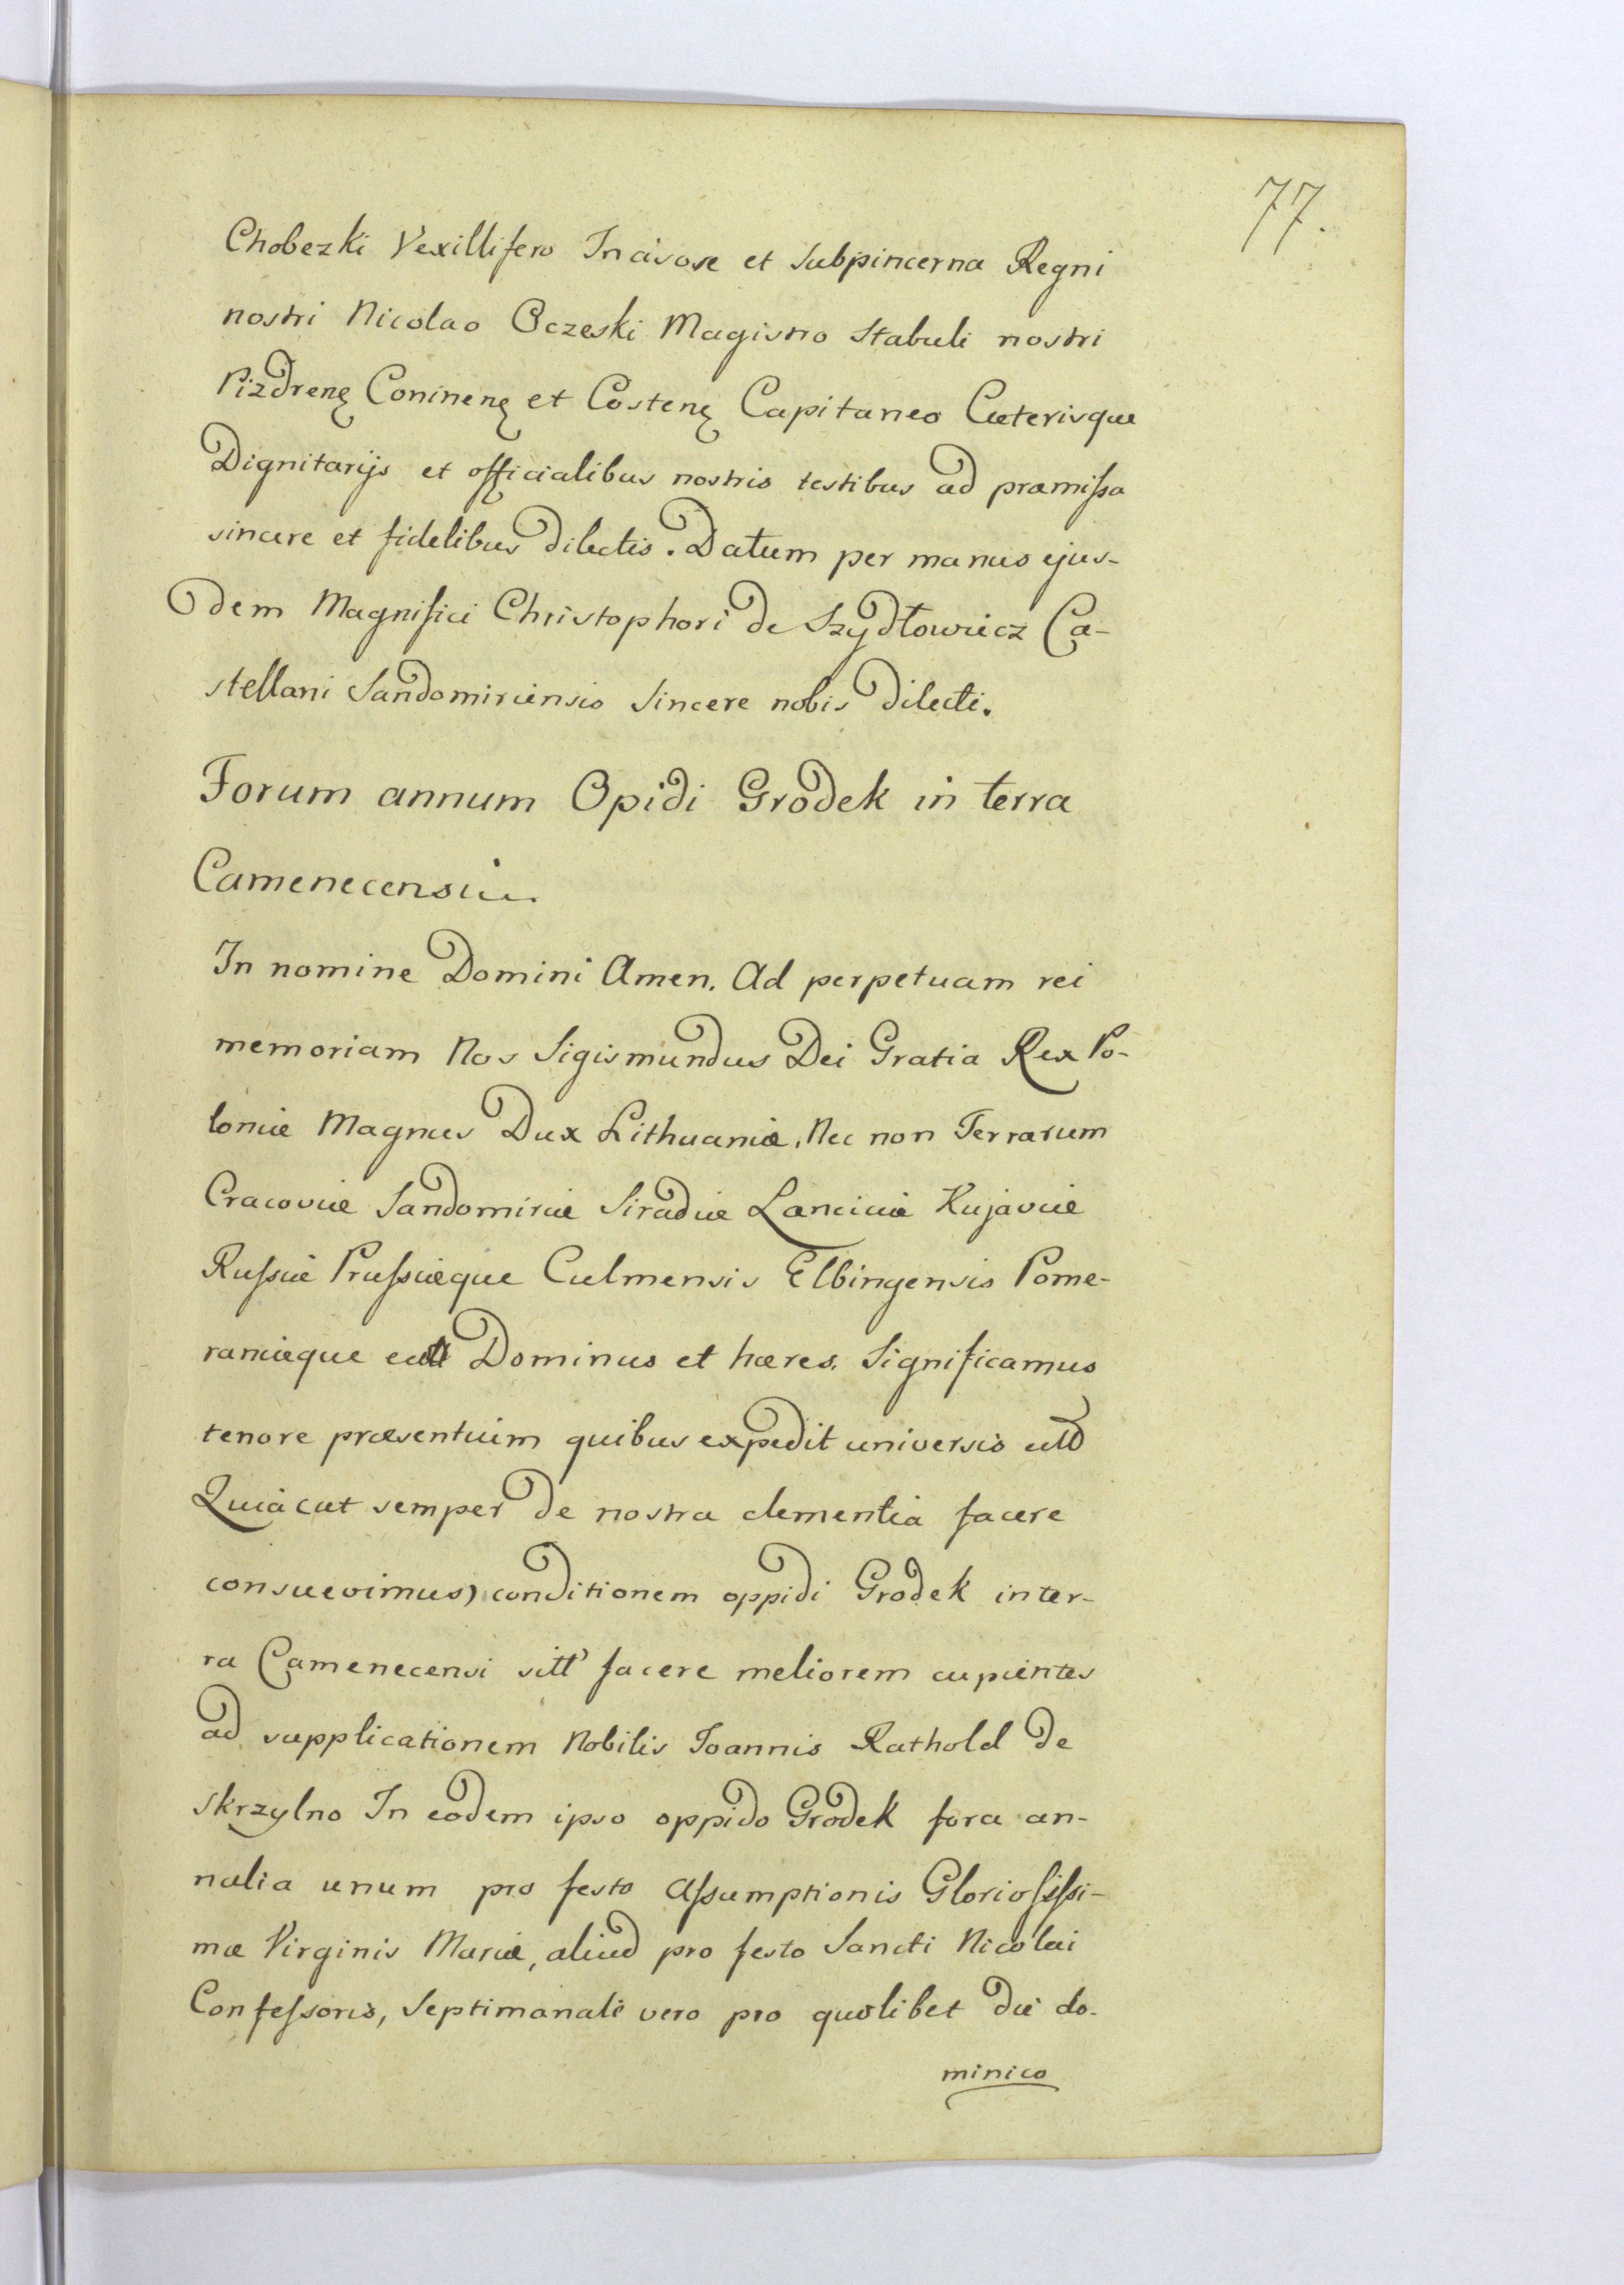 77.
Chobezki Vexillifero Incisore et Subpincerna Regni
nostri Nicolao Oczeski Magistro Stabuli nostri
Pizdrenę Coninenę et Costenę Capitaneo Cæterisque
Dignitarijs et officialibus nostris testibus ad præmissa
sincere et fidelibus dilectis. Datum per manus ejus-
dem Magnifici Christophori de Szydłowiecz Ca-
stellani Sandomiriensis Sincere nobis dilecti.
Forum annum Opidi Grodek in terra
Camenecensi
In nomine Domini Amen. Ad perpetuam rei
memoriam Nos Sigismundus Dei Gratia Rex Po-
loniæ Magnus Dux Lithuaniæ, Nec non Terrarum
Cracoviæ Sandomiriæ Siradiæ Lanciciæ Kujaviæ
Russiæ Prussiæque Culmensis Elbingensis Pome-
raniæque Dominus et hæres. Significamus
tenore præsentium quibus expedit universis
Quia cut semper de nostra clementia facere
consuevimus) conditionem oppidi Grodek in ter-
ra Camenecensi sitt' facere meliorem cupientes
ad supplicationem Nobilis Joannis Rathold de
Skrzylno In eodem ipso oppido Grodek fora an-
nalia unum pro festo Assumptionis Gloriosissi-
mæ Virginis Mariæ, aliud pro festo Sancti Nicolai
Confessoris, Septimanale vero pro quolibet die do-
minico